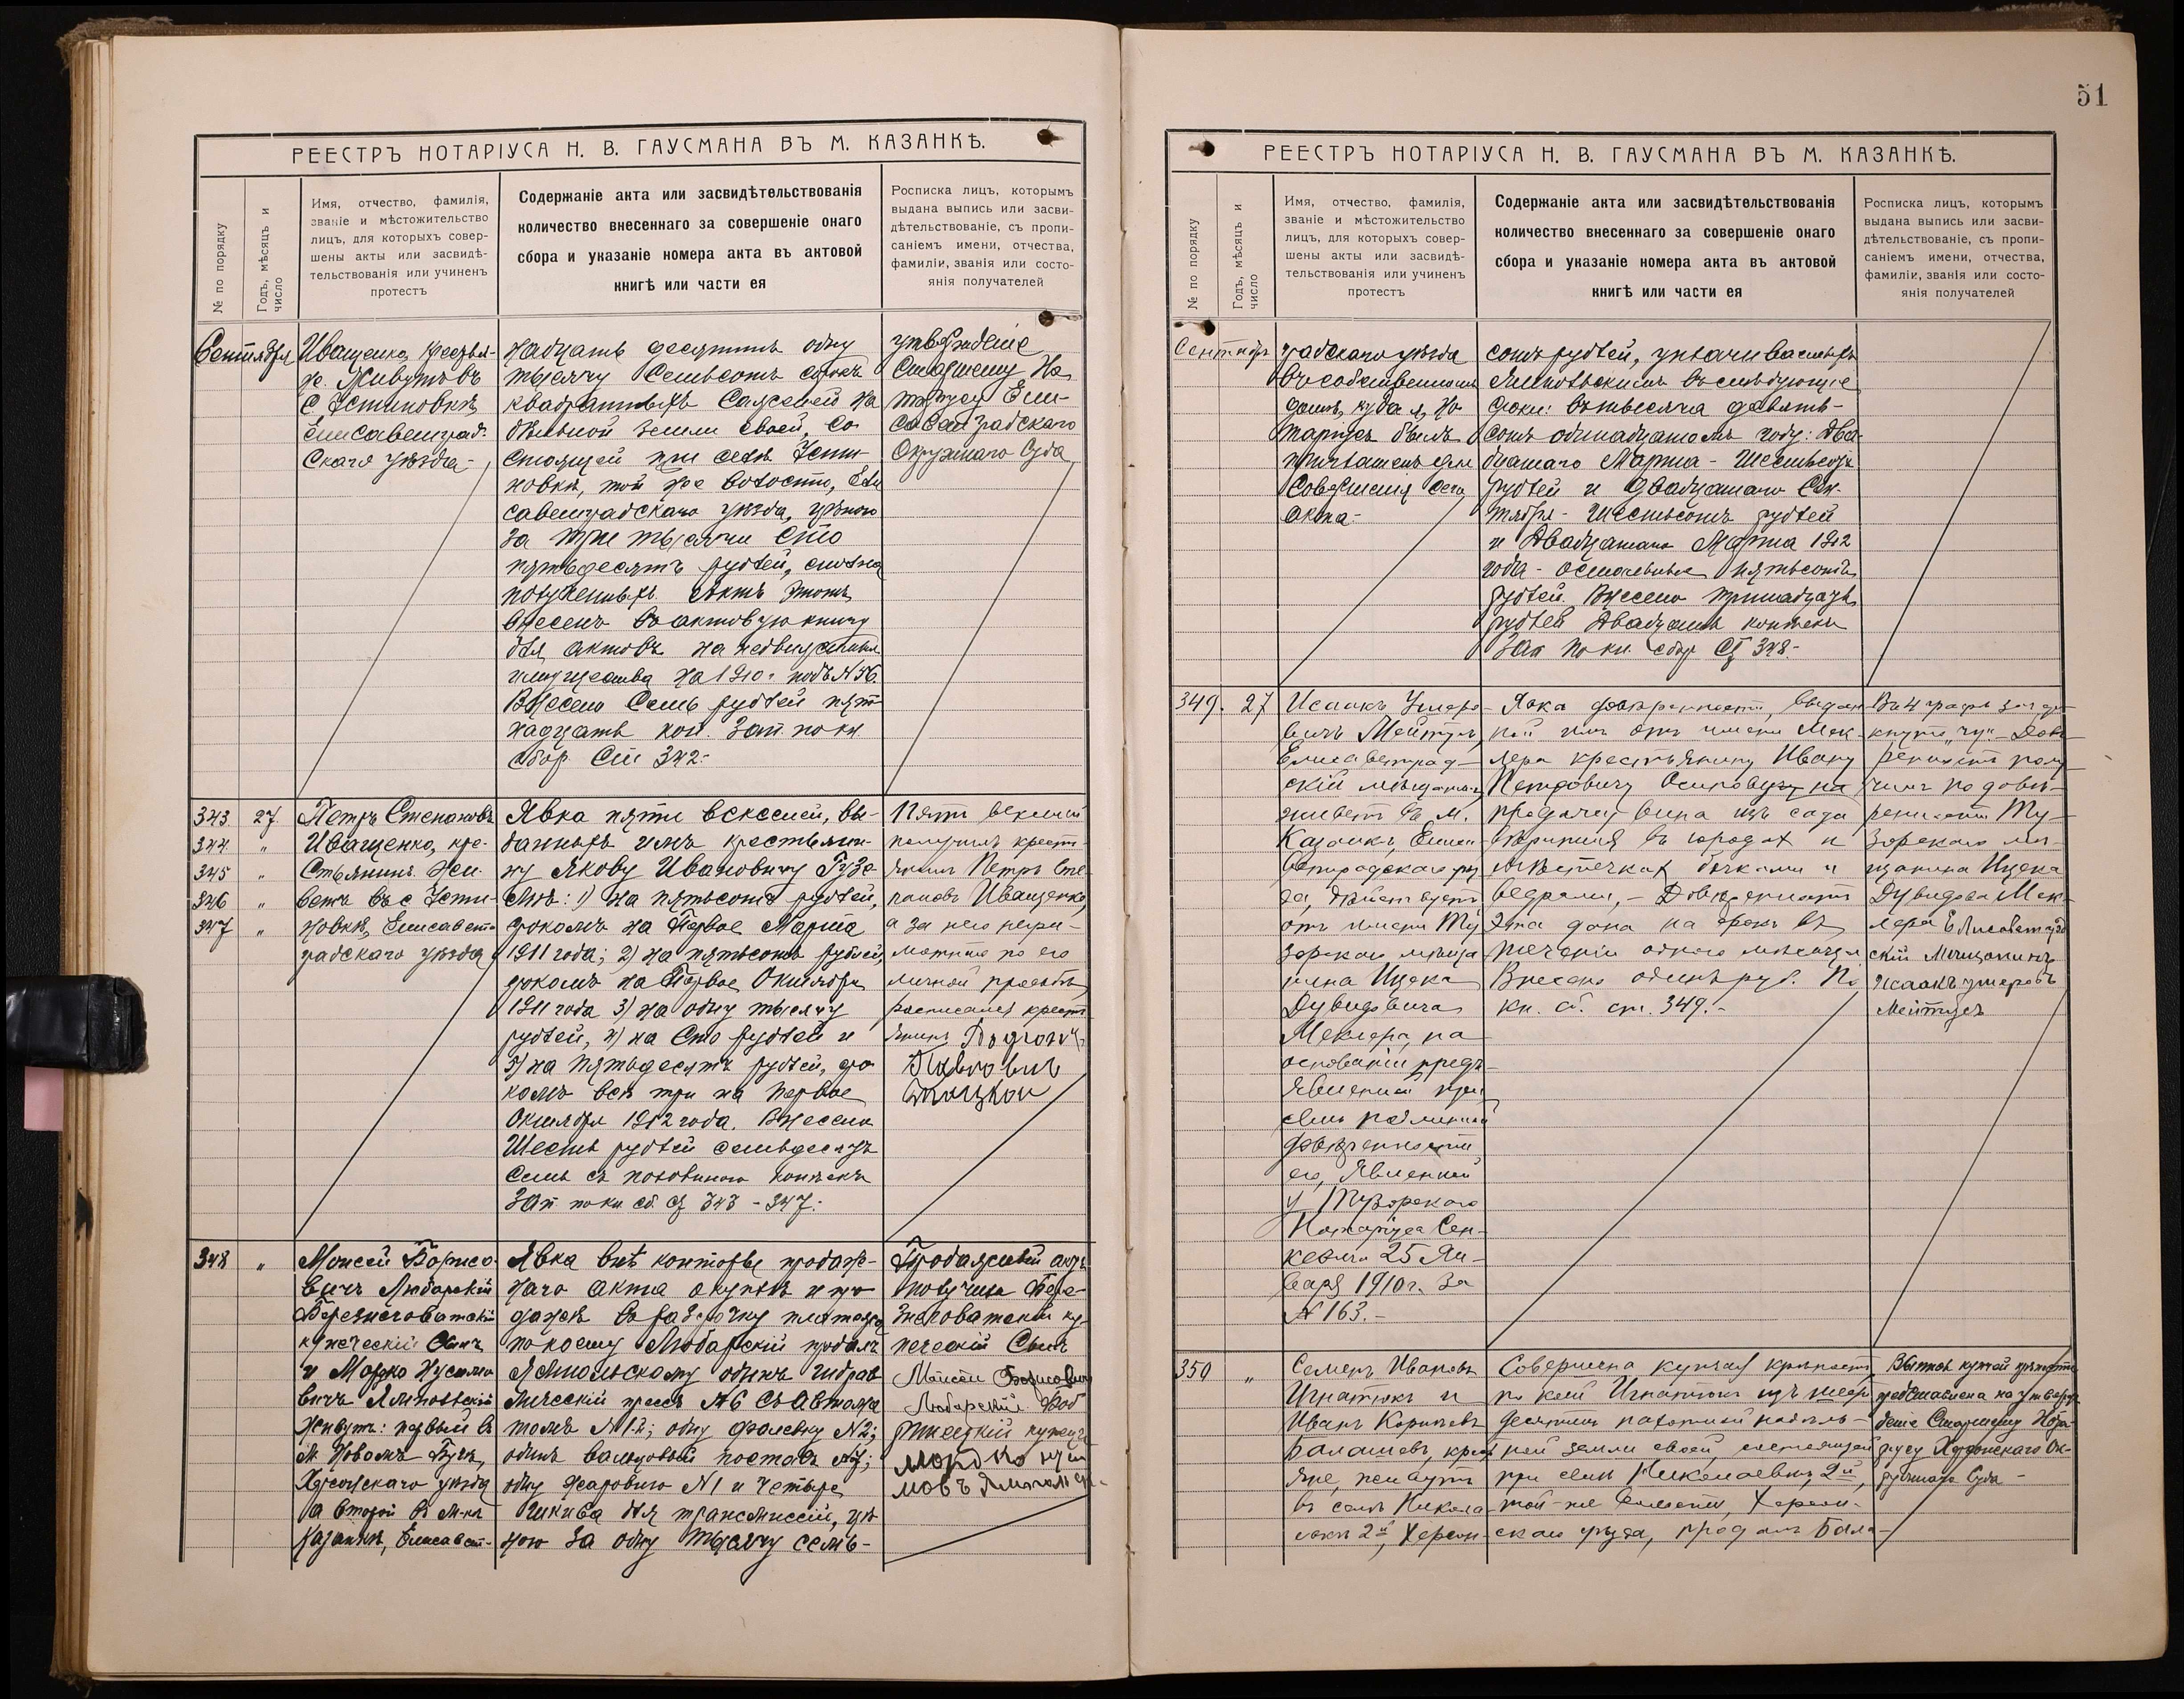 РЕЕСТРЪ НОТАРІУСА Н. В. ГАУСМАНА ВЪ М. КАЗАНКѢ.
№ по порядку
Годъ, мѣсяцъ и число
Имя, отчество, фамилія,
званіе и мѣстожительство
лицъ, для которыхъ совер-
шены акты или засвидѣ-
тельствованія или учиненъ
протестъ
Содержаніе акта или засвидѣтельствованія
количество внесеннаго за совершеніе онаго
сбора и указаніе номера акта въ актовой
книгѣ или части ея
Росписка лицъ, которымъ
выдана выпись или засви-
дѣтельствованіе, съ пропи-
саніемъ имени, отчества,
фамиліи, званія или состо-
янія получателей
Сентября
Иващенко, крестья-
не. Живутъ въ
с. Устиновкѣ,
Елисаветград-
скаго уѣзда-
надцать десятинъ одну
тысячу семьсотъ сорокъ
квадратныхъ саженей на
дѣльной земли своей, со
стоящей при селѣ Усти-
новкѣ, той же волости, Ели
саветградскаго уѣзда, цѣною
за три тысячи сто
пятьдесятъ рублей, сполна
полученныхъ. Актъ этотъ
внесенъ въ актовую книгу
для актовъ на недвижимыя
имущества на 1910 г. подъ № 56.
Внесено семь рублей пят
надцать коп. Зап. по кн
сбор. Ст. 342.-
утвержденіе
Старшему Но
таріусу Ели-
саветградскаго
Окружнаго Суда
343. 27
344 "
345 "
346 "
347 "
Петръ Степановъ
Иващенко, кре-
стьянинъ. Жи-
ветъ въ с. Усти-
новкѣ, Елисавет-
градскаго уѣзда
Явка пяти векселей, вы-
данныхъ имъ крестьяни-
ну Якову Ивановичу Гузе
: 1) на пятьсотъ рублей,
срокомъ на Первое Марта
1911 года; 2) на пятьсотъ рублей,
срокомъ на Первое Октября
1911 года 3) на одну тысячу
рублей, 4) на сто рублей и
5) на пятьдесятъ рублей, сро
комъ всѣ три на первое
Октября 1912 года. Внесено
шесть рублей семьдесятъ
семь съ половиною копѣекъ
Зап. по кн. сб. ст. 343 - 347.-
Пять векселей
получилъ крест-
янинъ Петръ Сте
пановъ Иващенко,
а за него негра-
мотнаго по его
личной просьбѣ
расписался крест
янинъ
348 "
Моисей Борисо-
вичъ Любарскій
Березнеговатскій
купеческій сынъ
и Мордко Нусимо
вичъ Ямпольскій
Живутъ: первый въ
м. Новомъ Бугѣ,
Херсонскаго уѣзда
а второй въ м-кѣ
Казанкѣ, Елисавет-
Явка внѣ конторы продаж-
наго акта о куплѣ и про
дажѣ въ разсрочку платежа
по коему Любарскій продалъ
Ямпольскому одинъ гидрав
лическій прессъ № 6 съ
; одну № 2;
одинъ вальцовый поставъ № ;
одну жаровню № 1 и четыре
шкива для трансмиссіи, цѣ
ною за одну тысячу семь-
Продажный актъ
получилъ Бере-
знеговатскій ку-
печескій сынъ
Моисей Борисовичъ
Любарскій
51
РЕЕСТРЪ НОТАРІУСА Н. В. ГАУСМАНА ВЪ М. КАЗАНКѢ.
№ по порядку
Годъ, мѣсяцъ и число
Имя, отчество, фамилія,
званіе и мѣстожительство
лицъ, для которыхъ совер-
шены акты или засвидѣ-
тельствованія или учиненъ
протестъ
Содержаніе акта или засвидѣтельствованія
количество внесеннаго за совершеніе онаго
сбора и указаніе номера акта въ актовой
книгѣ или части ея
Росписка лицъ, которымъ
выдана выпись или засви-
дѣтельствованіе, съ пропи-
саніемъ имени, отчества,
фамиліи, званія или состо-
янія получателей
Сентябрь
градскаго уѣзда
въ собственномъ
домѣ, куда я, Но
таріусъ былъ
приглашенъ для
совершенія сего
акта.-
сотъ рублей, уплачиваемыхъ
Ямпольскимъ въ слѣдующіе
сроки: въ тысяча девять-
сотъ одинадцатомъ году: два-
дцатаго Марта - шестьсотъ
рублей и двадцатаго Сен-
тября - шестьсотъ рублей
и двадцатаго Марта 1912
года - остальные пятьсотъ
рублей. Внесено тринадцать
рублей двадцать копѣекъ
Зап по кн. сбор. Ст. 348.-
349. 27
Исаакъ
вичъ Мейтусъ,
Елисаветград-
скій мѣщанинъ
живетъ въ м.
Казанкѣ, Елиса
ветградскаго уѣз
да, дѣйствуетъ
отъ имени Ту
зорскаго мѣща
нина Ицека
Дувидовича
Меклера, на
основаніи предъ
явленной при
семъ подлинной
довѣренности
его, явленной
у Тузорскаго
Нотаріуса Сен-
кевича 25 Ян-
варя 1910 г. за
№ 163.-
Явка довѣренности, выдан
ной имъ отъ имени Мек-
лера крестьянину Ивану
Петровичу на
продажу вина изъ сада
въ городахъ и
мѣстечкахъ бочками и
ведрами, - Довѣренность
эта дана на срокъ въ
теченіи одного мѣсяца
Внесено одинъ руб. По
кн. сб. ст. 349.-
Довѣ
ренность полу
чилъ по довѣ-
ренности Ту-
зорскаго мѣ-
щанина Ицека
Дувидова Мек-
лера Елисаветград
скій мѣщанинъ
Исаакъ
Мейтусъ
350 "
Семенъ Ивановъ
Игнатюкъ и
Иванъ Корнѣевъ
Балашовъ, крест
яне, живутъ
въ селѣ Никола
евкѣ 2й, Херсон-
Совершена купчая крѣпость
по коей Игнатюкъ изъ шести
десятинъ пахатной надѣль-
ной земли своей, состоящей
при селѣ Николаевкѣ 2й,
той-же волости, Херсон-
скаго уѣзда, продалъ Бала-
Выпись купчей крѣпости
представлена на утверж-
деніе Старшему Нота-
ріусу Херсонскаго Ок-
ружнаго Суда -